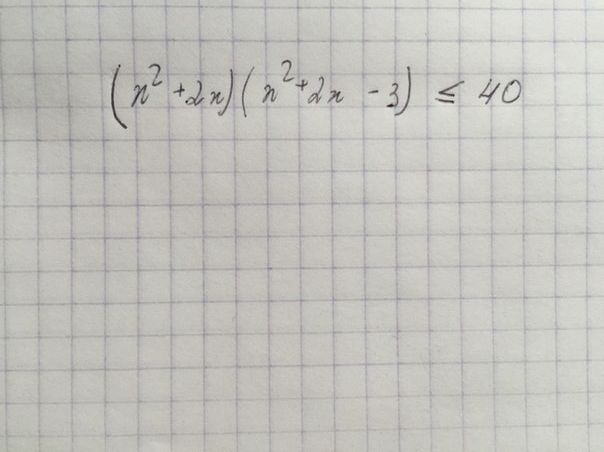 (x² + 2x)(x² + 2x - 3) ≤ 40